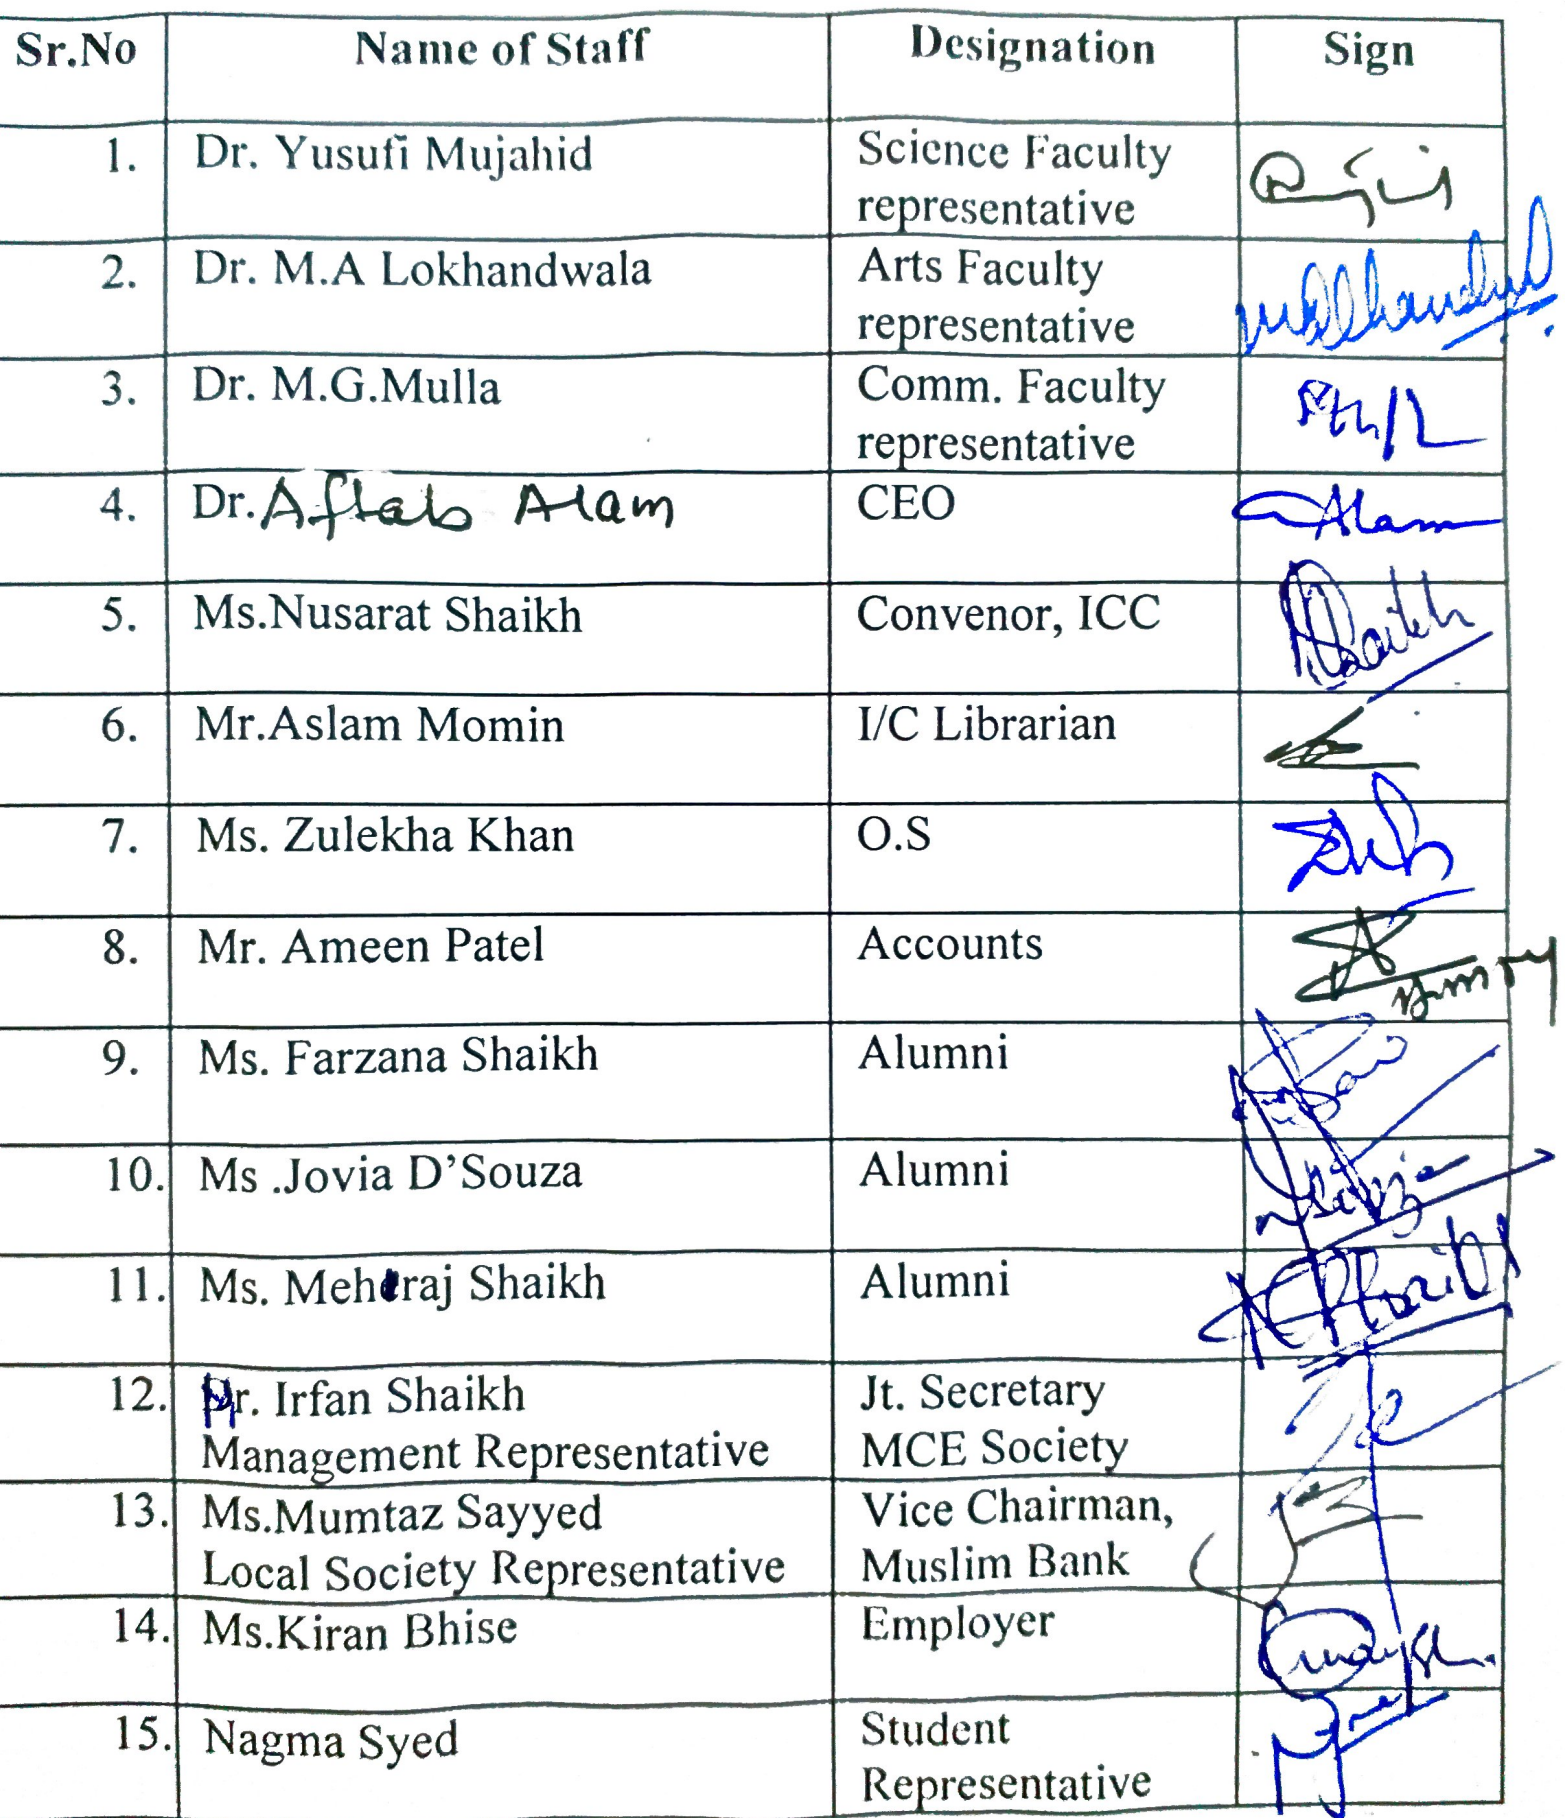 Sr.No Name of Staff Designation Sign
1. Dr. Yusufi Mujahid Science Faculty
representative
2. Dr. M.A Lokhandwala Arts Faculty
representative
3. Dr. M.G.Mulla Comm. Faculty
representative
4. Dr. Aftab Alam CEO Alam
5. Ms.Nusarat Shaikh Convenor, ICC
6. Mr.Aslam Momin I/C Librarian
7. Ms. Zulekha Khan O.S
8. Mr. Ameen Patel Accounts
9. Ms. Farzana Shaikh Alumni
10. Ms .Jovia D'Souza Alumni
11. Ms. Mehraj Shaikh Alumni
12. Mr. Irfan Shaikh Jt. Secretary
Management Representative MCE Society
13. Ms.Mumtaz Sayyed Vice Chairman,
Local Society Representative Muslim Bank
14. Ms.Kiran Bhise Employer
15. Nagma Syed Student
Representative